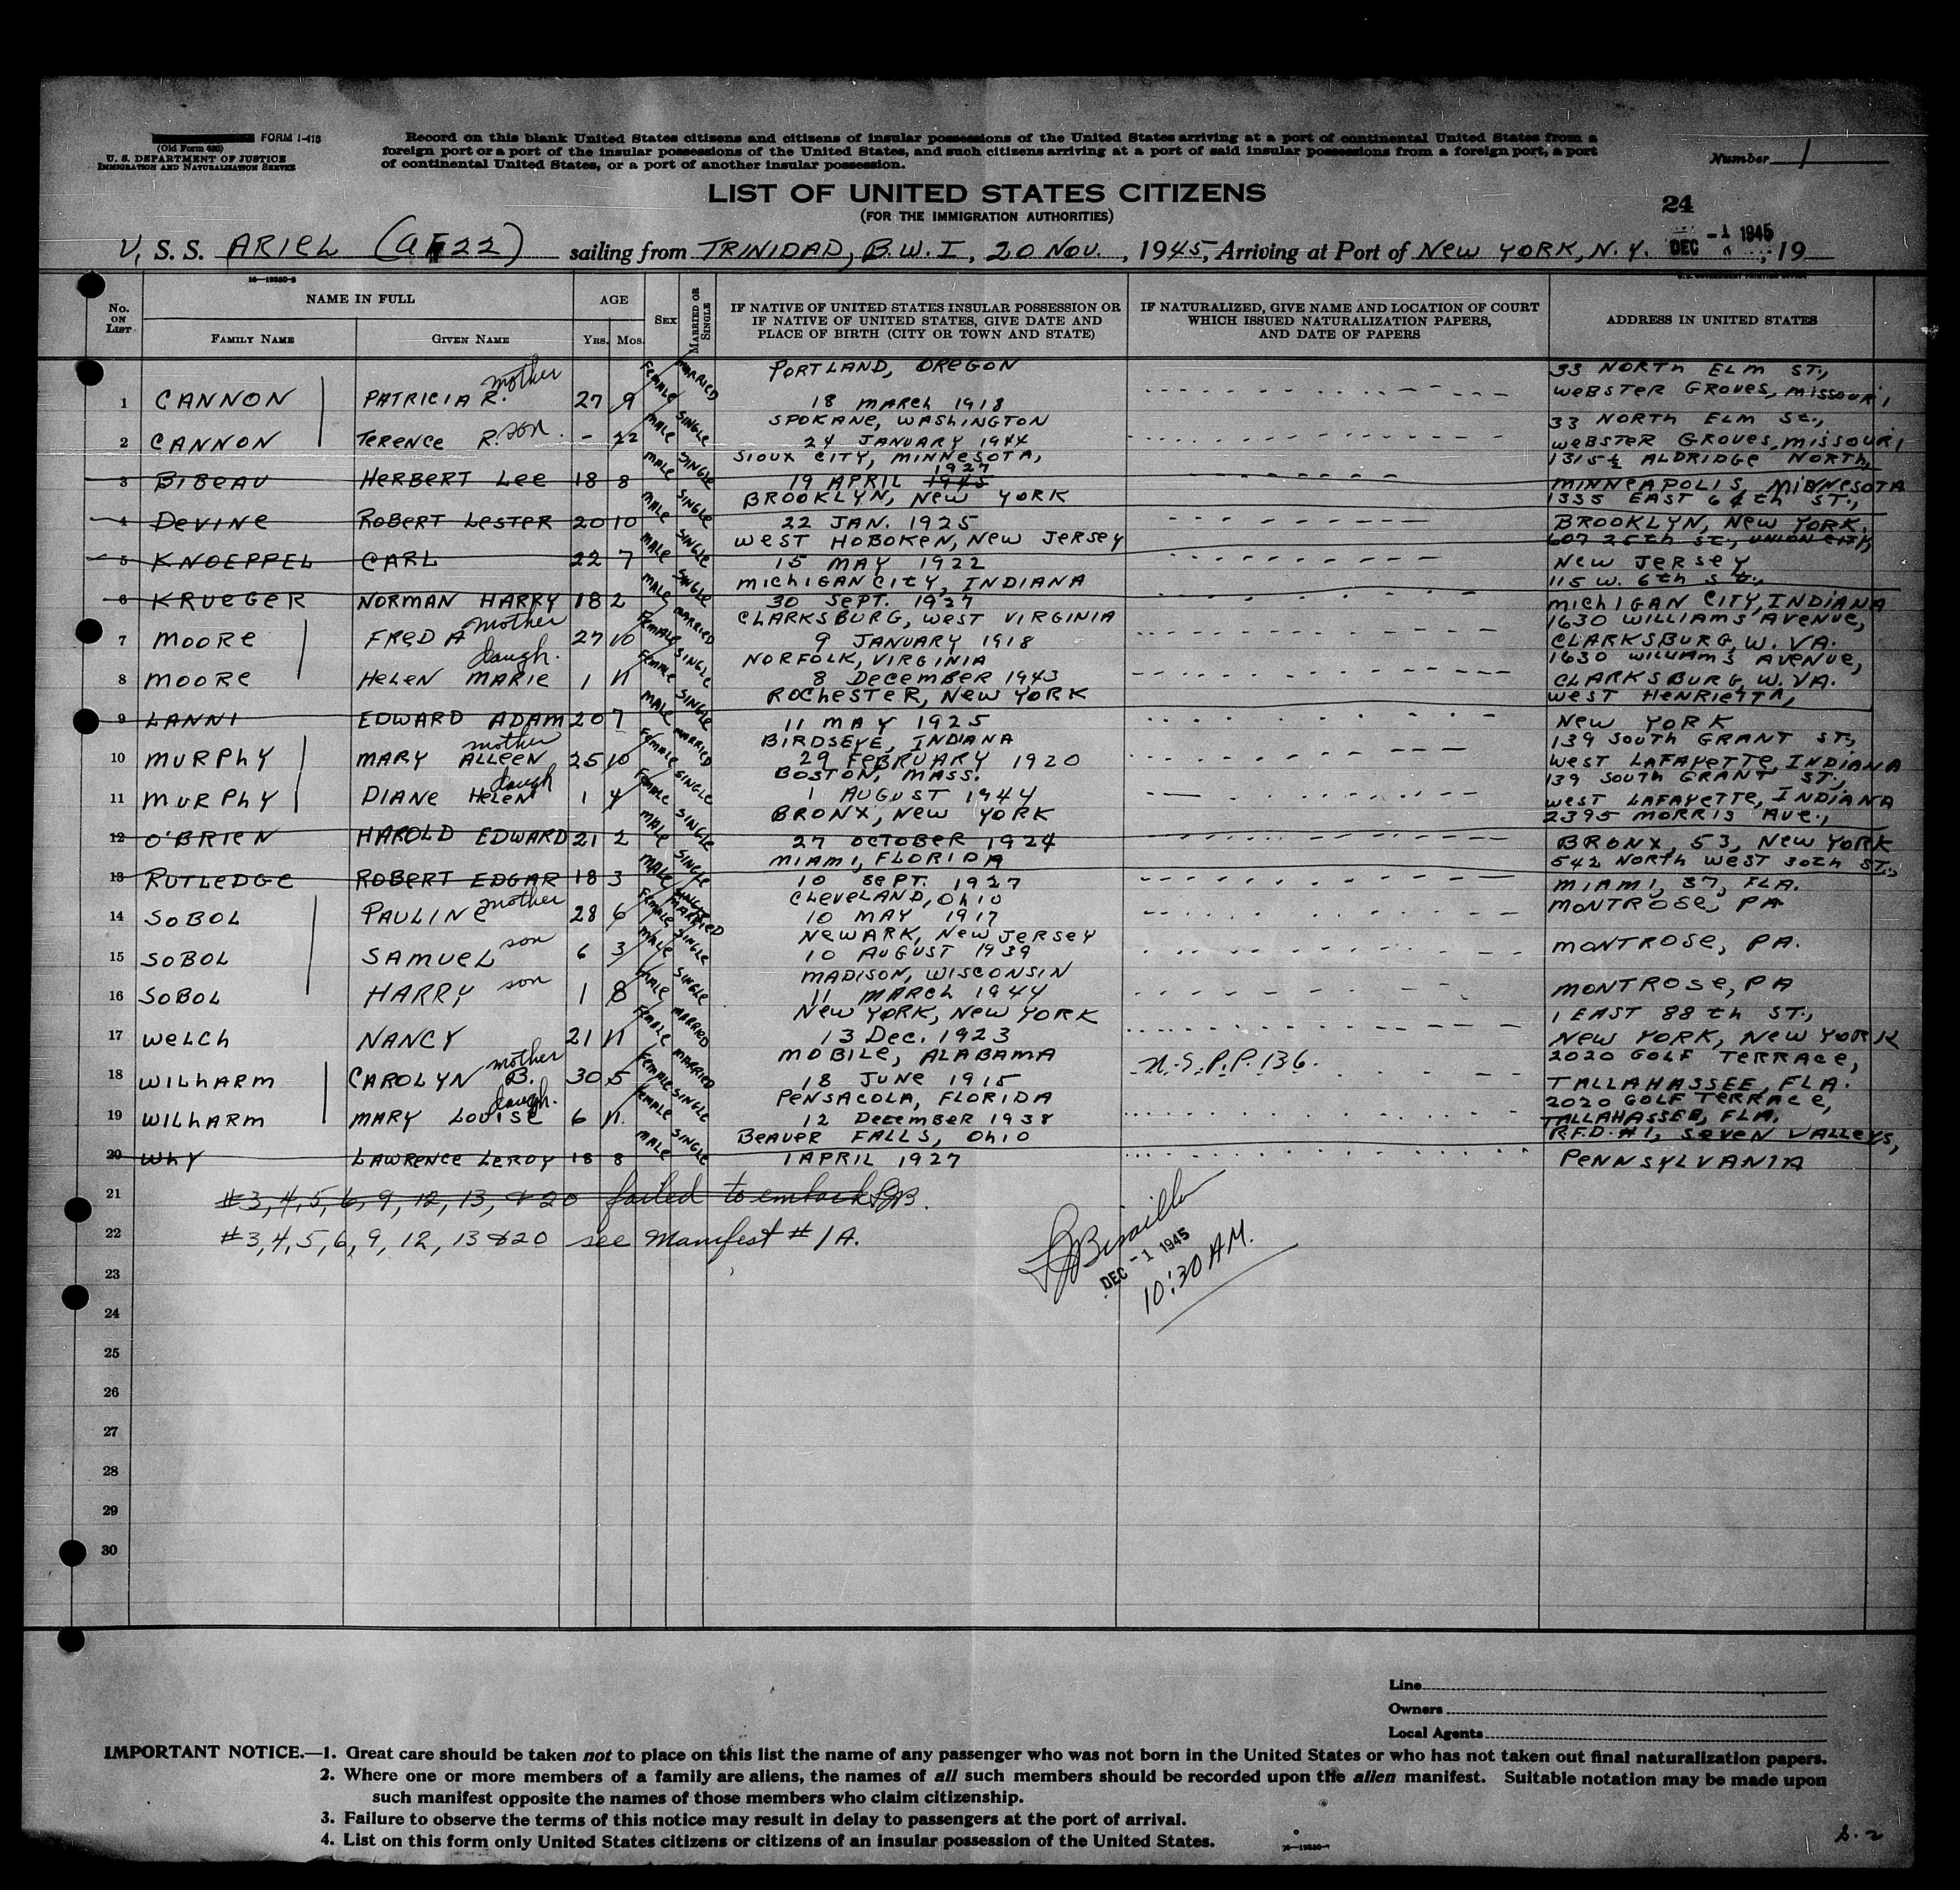 FORM I-415
(Old Form 630)
U. S. DEPARTMENT OF JUSTICE
IMMIGRATION AND NATURALIZATION SERVICE
Record on this blank United States citizens and citizens of insular possessions of the United States arriving at a port of continental United States from a
foreign port or a port of the insular possessions of the United States, and such citizens arriving at a port of said insular possessions from a foreign port, a port
of continental United States, or a port of another insular possession.
Number 1
LIST OF UNITED STATES CITIZENS
(FOR THE IMMIGRATION AUTHORITIES)
24
U. S. S. ARIEL (AF22) sailing from TRINIDAD, B.W.I., 20 NOV., 1945, Arriving at Port of NEW YORK, N.Y. DEC -1 1945, 19
No. ON LIST
NAME IN FULL
FAMILY NAME
GIVEN NAME
AGE
YRS. MOS.
SEX
MARRIED OR SINGLE
IF NATIVE OF UNITED STATES INSULAR POSSESSION OR
IF NATIVE OF UNITED STATES, GIVE DATE AND
PLACE OF BIRTH (CITY OR TOWN AND STATE)
IF NATURALIZED, GIVE NAME AND LOCATION OF COURT
WHICH ISSUED NATURALIZATION PAPERS,
AND DATE OF PAPERS
ADDRESS IN UNITED STATES
1 CANNON PATRICIA R. mother 27 9 FEMALE MARRIED PORTLAND, OREGON 18 MARCH 1918 33 NORTH ELM ST., WEBSTER GROVES, MISSOURI
2 CANNON TERENCE R. son - 22 MALE SINGLE SPOKANE, WASHINGTON 24 JANUARY 1944 33 NORTH ELM ST., WEBSTER GROVES, MISSOURI
3 BIBEAU HERBERT LEE 18 8 MALE SINGLE SIOUX CITY, MINNESOTA, 19 APRIL 1945 1927 1315½ ALDRIDGE NORTH, MINNEAPOLIS, MINNESOTA
4 DEVINE ROBERT LESTER 20 10 MALE SINGLE BROOKLYN, NEW YORK 22 JAN. 1925 1335 EAST 64th ST., BROOKLYN, NEW YORK.
5 KNOEPPEL CARL 22 7 MALE SINGLE WEST HOBOKEN, NEW JERSEY 15 MAY 1922 607 25th ST., UNION CITY, NEW JERSEY
6 KRUEGER NORMAN HARRY 18 2 MALE SINGLE MICHIGAN CITY, INDIANA 30 SEPT. 1927 115 W. 6th ST., MICHIGAN CITY, INDIANA
7 MOORE FREDA mother 27 10 FEMALE MARRIED CLARKSBURG, WEST VIRGINIA 9 JANUARY 1918 1630 WILLIAMS AVENUE, CLARKSBURG, W. VA.
8 MOORE HELEN MARIE daugh. 1 11 FEMALE SINGLE NORFOLK, VIRGINIA 8 DECEMBER 1943 1630 WILLIAMS AVENUE, CLARKSBURG, W. VA.
9 LANNI EDWARD ADAM 20 7 MALE SINGLE ROCHESTER, NEW YORK 11 MAY 1925 WEST HENRIETTA, NEW YORK
10 MURPHY MARY ALLEEN mother 25 10 FEMALE MARRIED BIRDSEYE, INDIANA 29 FEBRUARY 1920 139 SOUTH GRANT ST., WEST LAFAYETTE, INDIANA
11 MURPHY DIANE HELEN daugh 1 4 FEMALE SINGLE BOSTON, MASS. 1 AUGUST 1944 139 SOUTH GRANT ST., WEST LAFAYETTE, INDIANA
12 O'BRIEN HAROLD EDWARD 21 2 MALE SINGLE BRONX, NEW YORK 27 OCTOBER 1924 2395 MORRIS AVE., BRONX, 53, NEW YORK
13 RUTLEDGE ROBERT EDGAR 18 3 MALE SINGLE MIAMI, FLORIDA 10 SEPT. 1927 542 NORTH WEST 30th ST., MIAMI, 37, FLA.
14 SOBOL PAULINE mother 28 6 FEMALE SINGLE MARRIED CLEVELAND, OHIO 10 MAY 1917 MONTROSE, PA
15 SOBOL SAMUEL son 6 3 MALE SINGLE NEWARK, NEW JERSEY 10 AUGUST 1939 MONTROSE, PA.
16 SOBOL HARRY son 1 8 MALE SINGLE MADISON, WISCONSIN 11 MARCH 1944 MONTROSE, PA
17 WELCH NANCY 21 11 FEMALE MARRIED NEW YORK, NEW YORK 13 DEC. 1923 1 EAST 88th ST., NEW YORK, NEW YORK
18 WILHARM CAROLYN B. mother 30 5 FEMALE MARRIED MOBILE, ALABAMA 18 JUNE 1915 N.S.P.P. 136. 2020 GOLF TERRACE, TALLAHASSEE, FLA.
19 WILHARM MARY LOUISE daugh. 6 11 FEMALE SINGLE PENSACOLA, FLORIDA 12 DECEMBER 1938 2020 GOLF TERRACE, TALLAHASSEE, FLA.
20 WHY LAWRENCE LEROY 18 8 MALE SINGLE BEAVER FALLS, OHIO 1 APRIL 1927 R.F.D. #1, SEVEN VALLEYS, PENNSYLVANIA
21 #3, 4, 5, 6, 9, 12, 13, & 20 failed to embark
22 #3, 4, 5, 6, 9, 12, 13 & 20 see Manifest #1A.
DEC -1 1945
10:30 AM.
23
24
25
26
27
28
29
30
Line
Owners
Local Agents
IMPORTANT NOTICE.—1. Great care should be taken not to place on this list the name of any passenger who was not born in the United States or who has not taken out final naturalization papers.
2. Where one or more members of a family are aliens, the names of all such members should be recorded upon the alien manifest. Suitable notation may be made upon
such manifest opposite the names of those members who claim citizenship.
3. Failure to observe the terms of this notice may result in delay to passengers at the port of arrival.
4. List on this form only United States citizens or citizens of an insular possession of the United States.